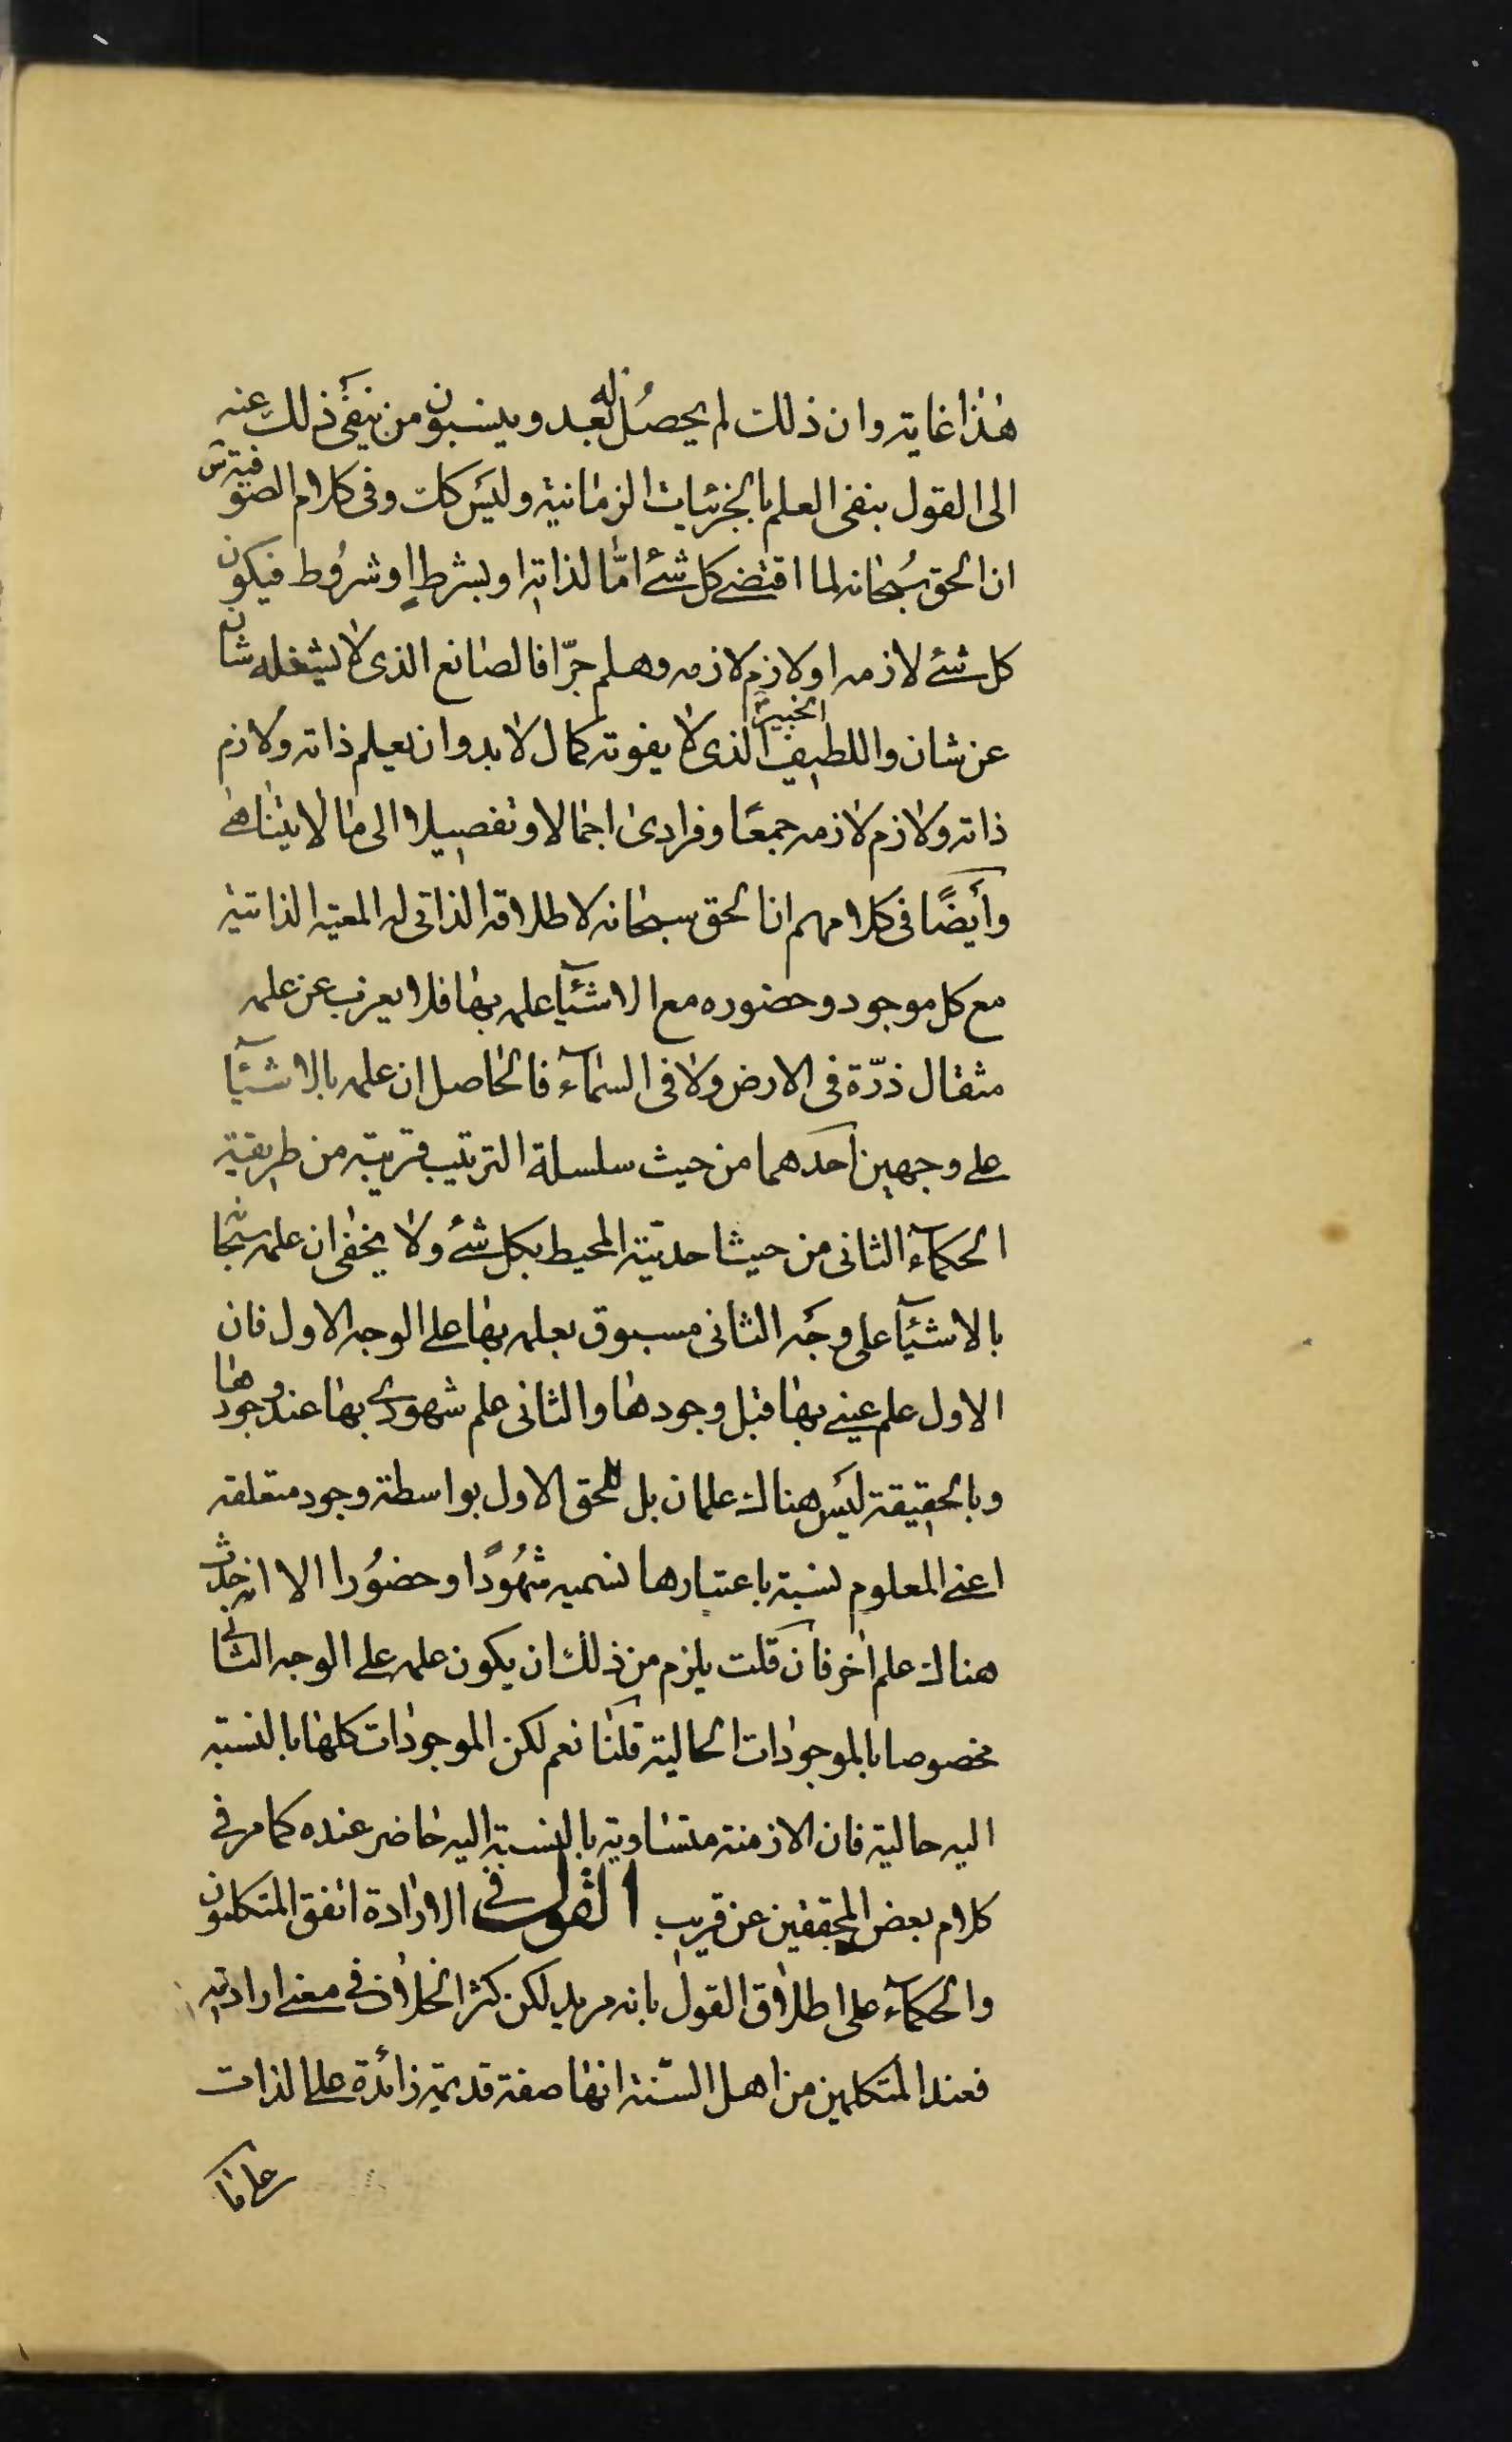 هذا غايته وان ذلك لم يحصل له بعد وينسبون من ينفي ذلك عنه
الى القول بنفى العلم بالجزئيات الزمانية وليس كك وفى كلام الصوفية
ان الحق سبحانه لما اقتضى كل شئ امّا لذاته او بشرط او شروط فيكون
كل شئ لازمه او لازم لازمه وهلم جرّا فالصانع الذى لا يشغله شان
عن شان واللطيف الخبير الذى لا يفوته كمال لا بد وان يعلم ذاته ولازم
ذاته ولازم لازمه جمعًا وفرادى اجمالا وتفصيلا الى ما لا يتناهى
وأيضًا فى كلامهم ان الحق سبحانه لاطلاقه الذاتى له المعية الذاتية
مع كل موجود وحضوره مع الاشيآ علمه بها فلا يعزب عن علمه
مثقال ذرّة فى الارض ولا فى السمآء فالحاصل ان علمه بالاشيآ
على وجهين احدهما من حيث سلسلة الترتيب قريبة من طريقة
الحكمآء الثانى من حيث احديته المحيط بكل شئ ولا يخفى ان علمه سبحا
بالاشيآ على وجه الثانى مسبوق بعلمه بها على الوجه الاول فان
الاول علم عينى بها قبل وجودها والثانى علم شهودى بها عند وجودها
وبالحقيقة ليس هناك علمان بل لحق الاول بواسطة وجود متعلقه
اعنى المعلوم نسبة باعتبارها نسميه شهودًا وحضورا لا انه حدث
هناك علم اخر فان قلت يلزم من ذلك ان يكون علمه على الوجه الثانى
مخصوصا بالموجودات الحالية قلنا نعم لكن الموجودات كلها بالنسبة
اليه حالية فان الازمنة متساوية بالنسبة اليه حاضر عنده كما مر فى
كلام بعض المحققين عن قريب القول فى الارادة اتفق المتكلمون
والحكمآء على اطلاق القول بانه مريد لكن كثر الخلاف فى معنى ارادته
فعند المتكلمين من اهل السّنة انها صفة قديمة زائدة على الذات
على ما